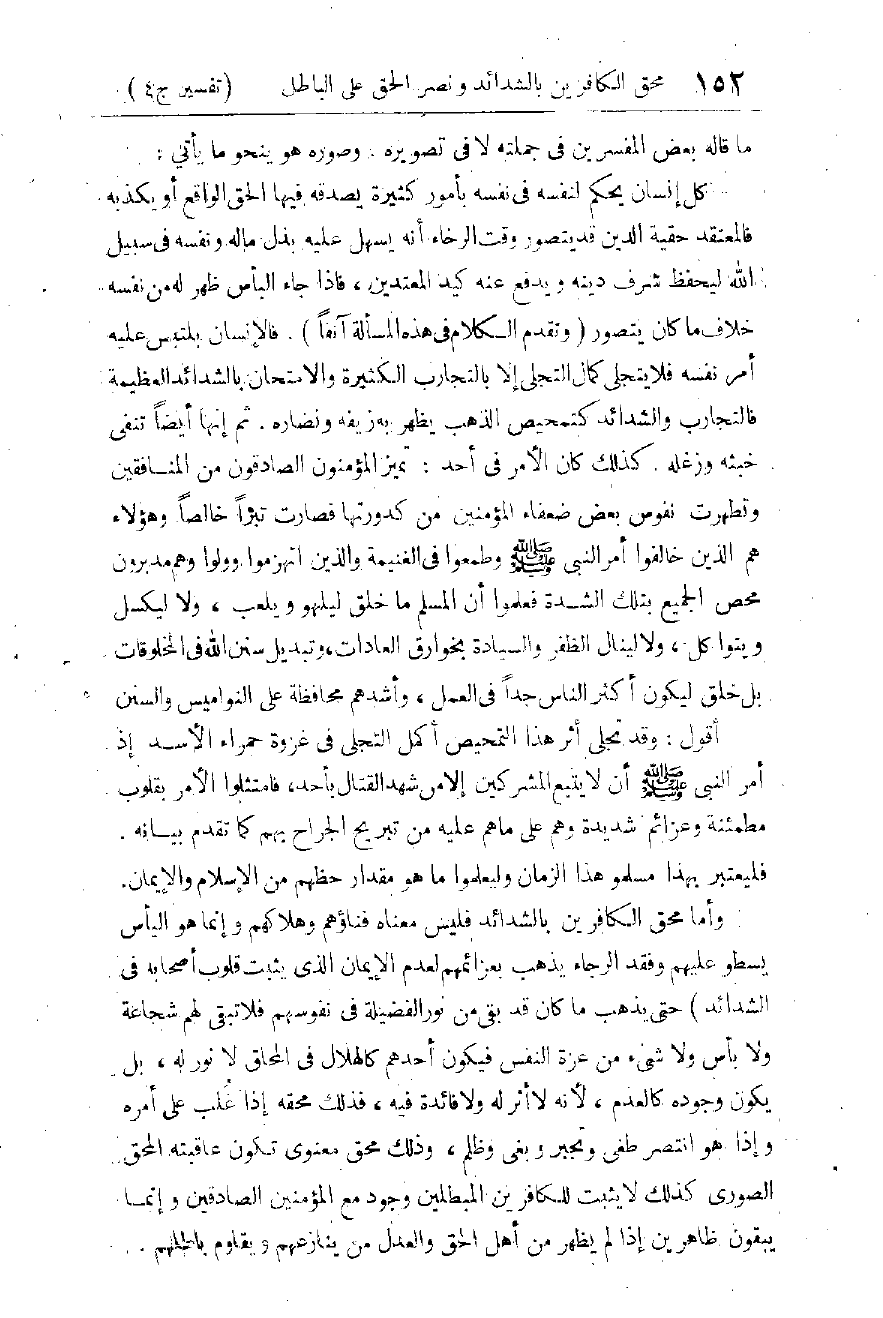 ١٥٢ محق الكافرين بالشدائد ونصر الحق على الباطل (تفسير ج٤)
ما قاله بعض المفسرين فى جملته لا فى تصويره . وصوره هو بنحو ما يأتي :
كل إنسان يحكم لنفسه فى نفسه بأمور كثيرة يصدقه فيها الحق الواقع أو يكذبه
فالمعتقد حقية الدين قد يتصور وقت الرخاء أنه يسهل عليه بذل ماله ونفسه فى سبيل
الله ليحفظ شرف دينه ويدفع عنه كيد المعتدين ، فاذا جاء البأس ظهر له من نفسه
خلاف ما كان يتصور ( وتقدم الكلام فى هذه المسألة آنفاً ) . فالإنسان يلتبس عليه
أمر نفسه فلا يتجلى كمال التجلى إلا بالتجارب الكثيرة والامتحان بالشدائد العظيمة
فالتجارب والشدائد كتمحيص الذهب يظهر به زيفه ونضاره . ثم إنها أيضاً تنفى
خبثه وزغله . كذلك كان الأمر فى أحد : تميز المؤمنون الصادقون من المنافقين
وتطهرت نفوس بعض ضعفاء المؤمنين من كدورتها فصارت تبراً خالصاً وهؤلاء
هم الذين خالفوا أمر النبى ﷺ وطمعوا فى الغنيمة والذين انهزموا وولوا وهم مدبرون
محص الجميع بتلك الشدة فعلموا أن المسلم ما خلق ليلهو ويلعب ، ولا ليكسل
ويتواكل ، ولا لينال الظفر والسيادة بخوارق العادات ، وتبديل سنن الله فى المخلوقات
بل خلق ليكون أكثر الناس جداً فى العمل ، وأشدهم محافظة على النواميس والسنن
أقول : وقد تجلى أثر هذا التمحيص أكمل التجلى فى غزوة حمراء الأسد إذ
أمر النبى ﷺ أن لا يتبع المشركين إلا من شهد القتال بأحد، فامتثلوا الأمر بقلوب
مطمئنة وعزائم شديدة وهم على ماهم عليه من تبريح الجراح بهم كما تقدم بيانه .
فليعتبر بهذا مسلمو هذا الزمان وليعلموا ما هو مقدار حظهم من الإسلام والإيمان.
وأما محق الكافرين بالشدائد فليس معناه فناؤهم وهلاكهم وإنما هو اليأس
يسطو عليهم وفقد الرجاء يذهب بعزائمهم لعدم الإيمان الذى يثبت قلوب أصحابه فى
الشدائد ) حتى يذهب ما كان قد بقى من نور الفضيلة فى نفوسهم فلا تبقى لهم شجاعة
ولا بأس ولا شىء من عزة النفس فيكون أحدهم كالهلال فى المحاق لا نور له ، بل
يكون وجوده كالعدم ، لأنه لا أثر له ولا فائدة فيه ، فذلك محقه إذا غُلب على أمره
وإذا هو انتصر طغى وتجبر وبغى وظلم ، وذلك محق معنوى تكون عاقبته المحق
الصورى كذلك لا يثبت للكافرين المبطلين وجود مع المؤمنين الصادقين وإنما
يبقون ظاهرين إذا لم يظهر من أهل الحق والعدل من ينازعهم ويقاوم باطلهم .